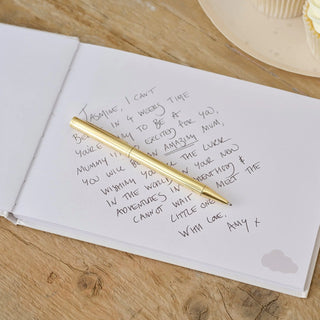 JASMINE, I CAN'T
IN 4 WEEKS TIME
YOU'RE TO BE A
MUMMY EXCITED FOR YOU,
YOU WILL BE AN AMAZING MUM,
WISHING YOU THE LUCK
IN THE WORLD IN YOUR NEW
ADVENTURES IN PARENTHOOD &
CANNOT WAIT MEET THE
LITTLE ONE
WITH LOVE, AMY X